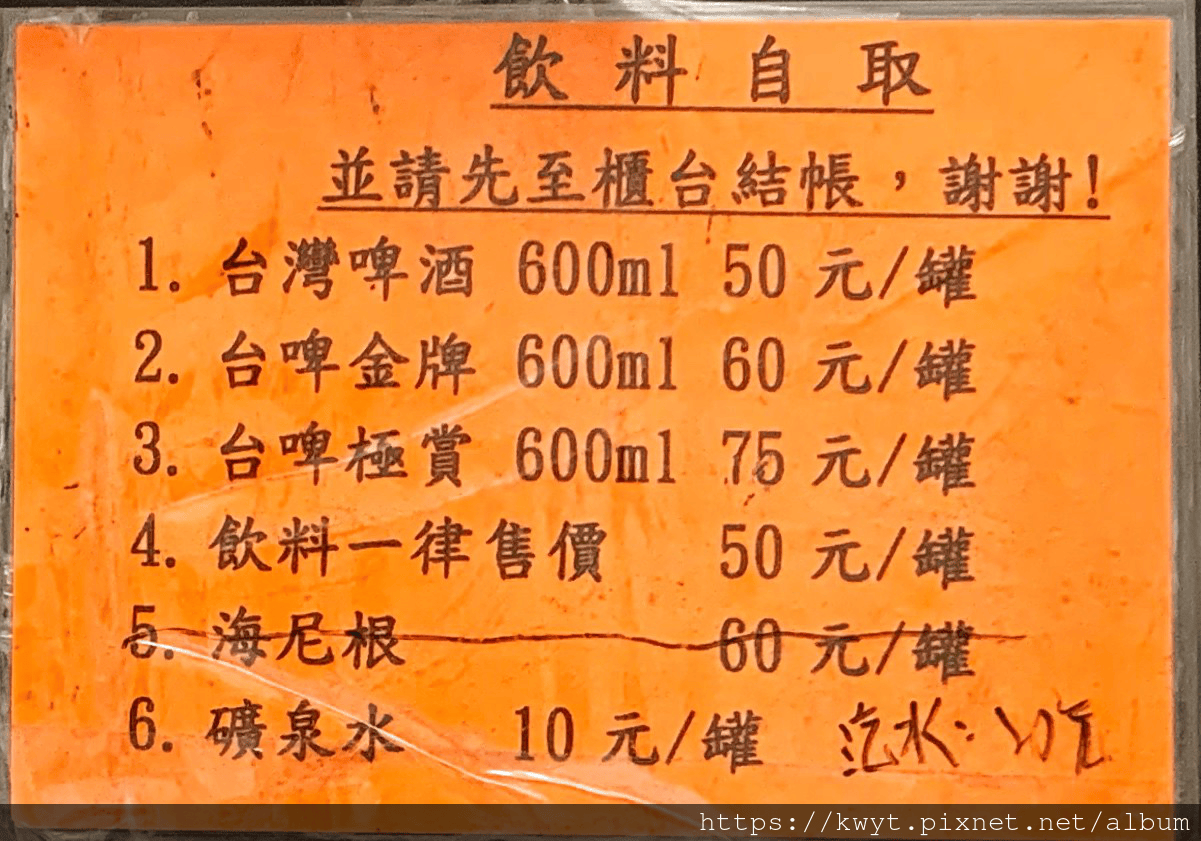 飲料自取
並請先至櫃台結帳，謝謝!
1. 台灣啤酒 600ml 50 元/罐
2. 台啤金牌 600ml 60 元/罐
3. 台啤極賞 600ml 75 元/罐
4. 飲料一律售價 50 元/罐
5. 海尼根 60 元/罐
6. 礦泉水 10 元/罐 汽水:
https://kwyt.pixnet.net/album